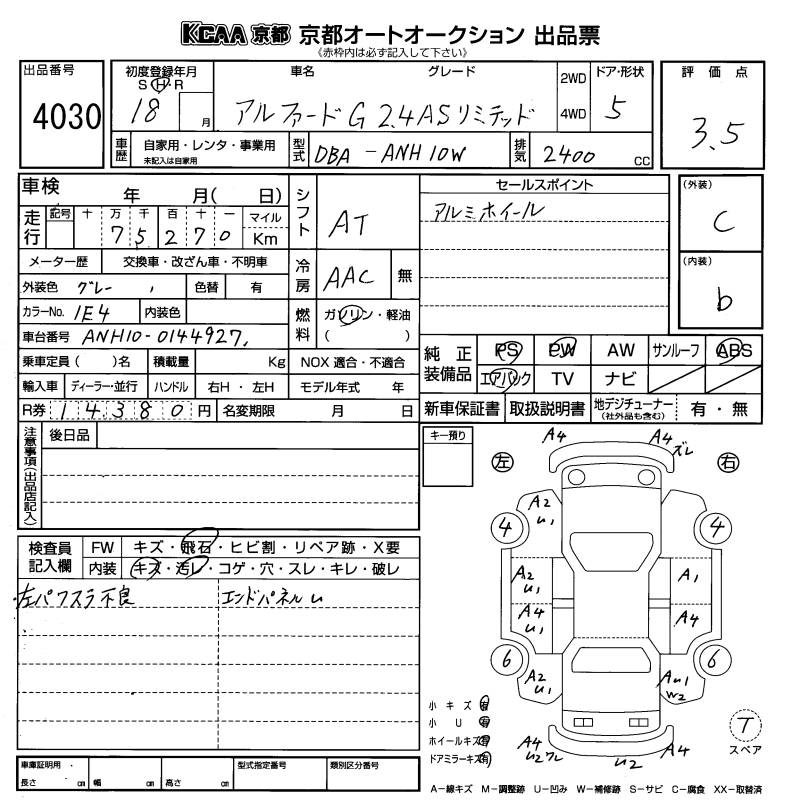 KCAA 京都 京都オートオークション 出品票
《赤枠内は必ず記入して下さい》
出品番号
4030
初度登録年月
S H R
18 月
車名 グレード
アルファードG 2.4ASリミテッド
2WD
4WD
ドア・形状
5
評価点
3.5
車歴
自家用・レンタ・事業用
未記入は自家用
型式
DBA-ANH10W
排気
2400 CC
車検 年 月( 日)
走行
記号 十 万 千 百 十 一 マイル
7 5 2 7 0 Km
メーター歴 交換車・改ざん車・不明車
外装色 グレー 色替 有
カラーNo. 1E4 内装色
車台番号 ANH10-0144927
乗車定員( )名 積載量 Kg NOX 適合・不適合
輸入車 ディーラー・並行 ハンドル 右H・左H モデル年式 年
R券 14380 円 名変期限 月 日
シフト AT
冷房 AAC 無
燃料 ガソリン・軽油
( )
セールスポイント
アルミホイール
(外装)
C
(内装)
b
純正装備品
PS PW AW サンルーフ ABS
エアバック TV ナビ
新車保証書 取扱説明書 地デジチューナー
(社外品も含む) 有・無
注意事項(出品店記入)
後日品
キー預り
検査員記入欄
FW キズ・飛石・ヒビ割・リペア跡・X要
内装 キズ・汚レ・コゲ・穴・スレ・キレ・破レ
左パワスラ不良 エンドパネルU
左 右
A4 A4 ズレ
A2 U1
4 4
A2 U1 A1
A4 U1 A4
6 6
A2 U1 AU1 W2
A4 U2ワレ U2 A4
小キズ 有
小U 有
ホイールキズ 有
ドアミラーキズ 有
T
スペア
車庫証明用・
長さ cm 幅 cm 高さ cm
型式指定番号 類別区分番号
A−線キズ M−調整跡 U−凹み W−補修跡 S−サビ C−腐食 XX−取替済